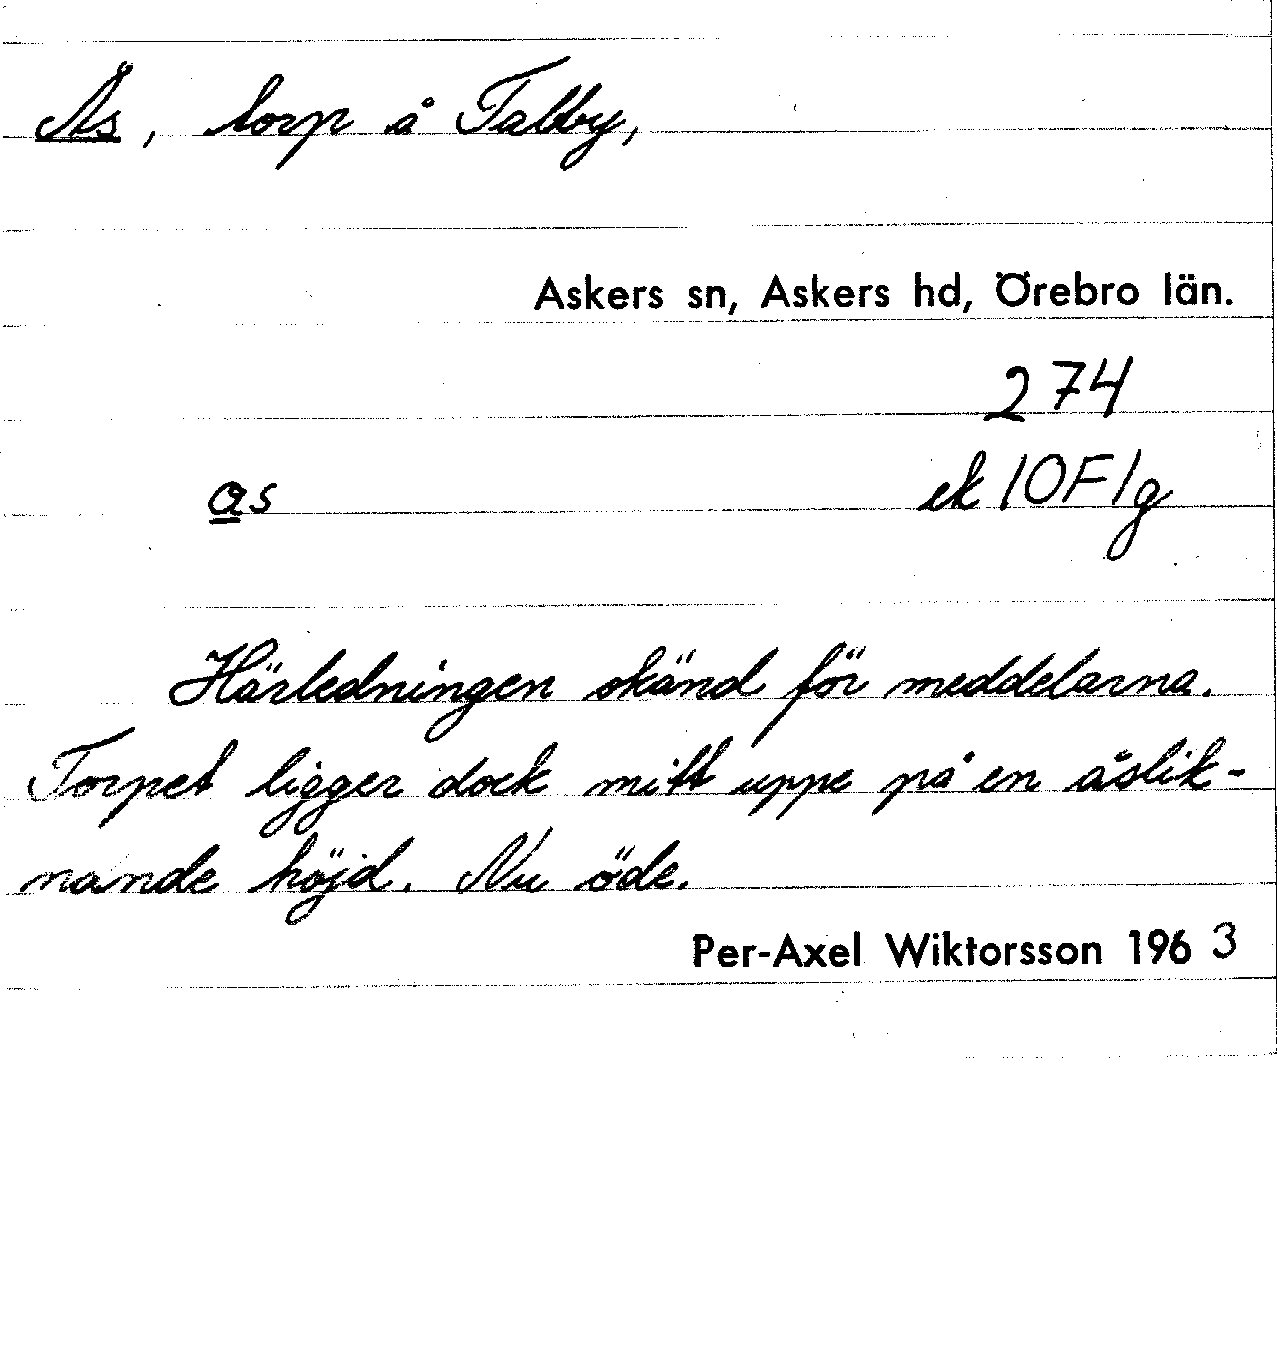 Ås, torp å Talby,
Askers sn, Askers hd, Örebro län.
274
as ek 10F1g
Härledningen okänd för meddelarna.
Torpet ligger dock mitt uppe på en åslik-
nande höjd. Nu öde.
Per-Axel Wiktorsson 1963